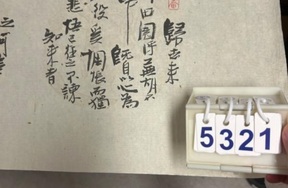 歸去來
田園將蕪胡
既自以心為
役奚惆悵而獨
悟已往之不諫
知來者
之可
5321